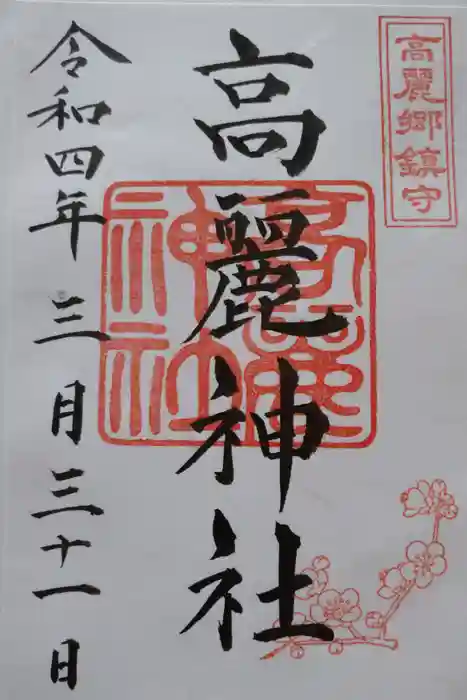 高麗郷鎮守
高麗神社
高麗神社
令和四年三月三十一日